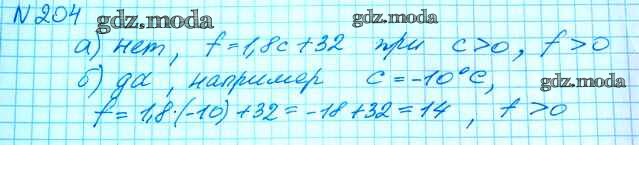 N 204 gdz.moda gdz.moda
а) нет, f = 1,8c + 32 при c > 0, f > 0
б) да, например c = -10°C, gdz.moda
f = 1,8·(-10) + 32 = -18 + 32 = 14, f > 0